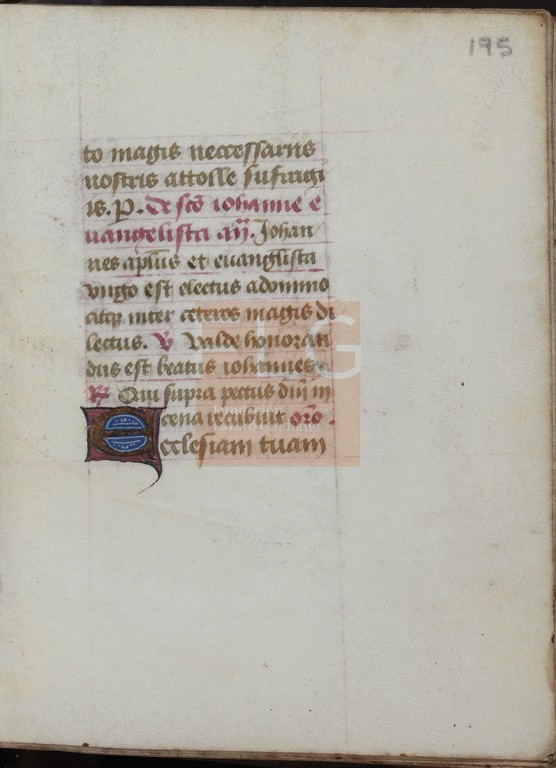 195
to magis neccessariis
nostris attolle sufragi
is. P. De sco iohanne e
uangelista añ. Johan
nes aplus et euanglista
uirgo est electus a domino
atq; inter ceteros magis di
lectus. V Valde honoran
dus est beatus iohannes.
R Qui supra pectus dni in
cena recubuit oro.
Ecclesiam tuam